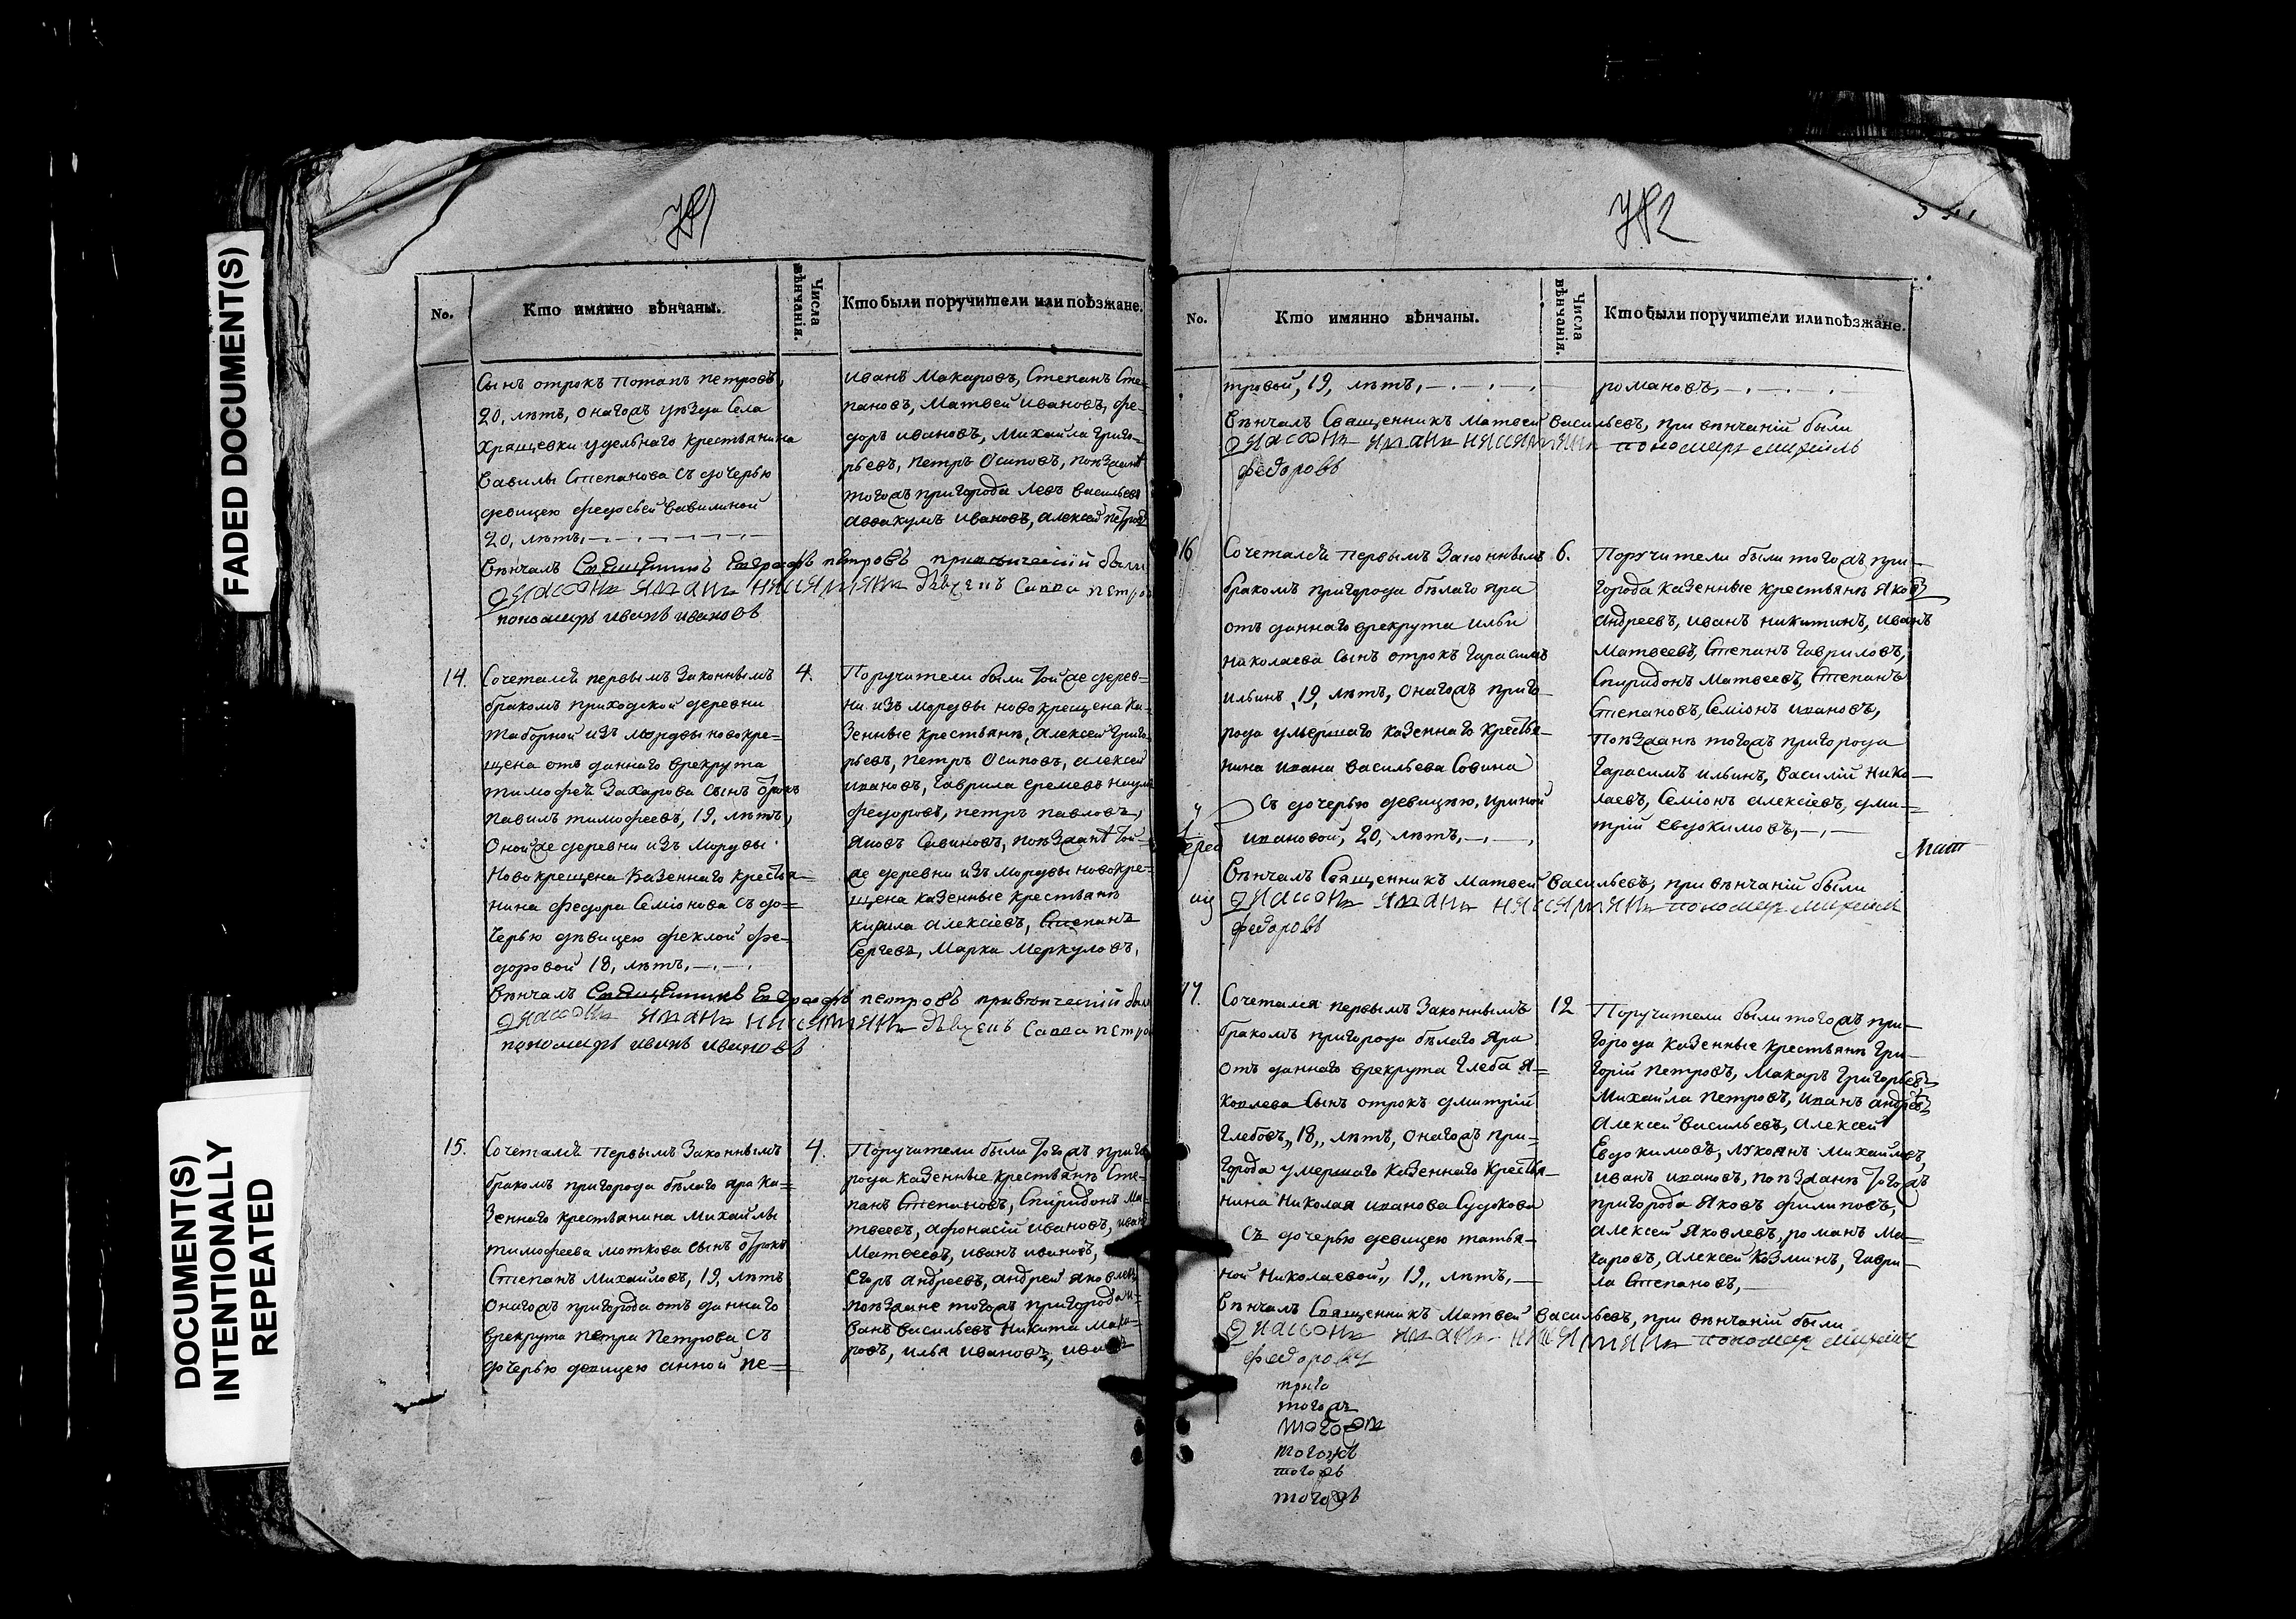 FADED DOCUMENT(S)
DOCUMENT(S)
INTENTIONALLY
REPEATED
No.
Кто имянно вѣнчаны.
Числа вѣнчанія.
Кто были поручители или поѣзжане.
Сынъ отрокъ Потапъ петровъ,
20, лѣтъ, онагожъ уѣзда Села
Хрящевки удельнаго крестьянина
Вавилы Степанова съ дочерью
девицею федосьей вавилиной
20, лѣтъ,
иванъ Макаровъ, Степанъ Сте-
пановъ, Матвей ивановъ, фе-
доръ ивановъ, Михайла григо-
рьевъ, петръ Осиповъ, поѣзжанѣ
тогожъ пригорода Левъ васильевъ
аввакумъ ивановъ, алексей петровъ
Вѣнчалъ Священникъ Евграфъ петровъ при вѣнчаніи были
Савва петро
пономарь иванъ ивановъ
14.
Сочетался первымъ Законнымъ
бракомъ приходской деревни
таборной изъ мордвы новокре=
щена отъ даннаго врекрута
тимофея Захарова сынъ отрокъ
павилъ тимофеевъ, 19, лѣтъ,
Оной же деревни изъ мордвы
новокрещена казеннаго крестья=
нина федора Семіонова съ до=
черью дѣвицею феклой фе=
доровой 18, лѣтъ,
4.
Поручители были той же дерев=
ни изъ мордвы новокрещена ка-
зенные крестьянѣ, алексей григо-
рьевъ, петръ Осиповъ, алексей
ивановъ, гаврила еремевъ наум
федоровъ, петръ павловъ,
яковъ Савиновъ, поѣзжанѣ той-
же деревни изъ мордвы новокре=
щена казенные крестьянѣ
кирила алексіевъ, Степанъ
Сергевъ, Марка Меркуловъ,
Вѣнчалъ Священникъ Евграфъ петровъ при вѣнчаніи были
Савва петро
пономарь иванъ ивановъ
15.
Сочетался Первымъ Законнымъ
бракомъ пригорода бѣлаго яра ка=
зеннаго крестьянина Михайлы
тимофеева моткова сынъ отрокъ
Степанъ Михайловъ, 19, лѣтъ
онагожъ пригорода отъ даннаго
врекрута петра Петрова съ
дочерью девицею анной пе=
4.
Поручители были тогожъ приго
рода казенные крестьянѣ Сте-
панъ Степановъ, Спиридонъ Ма-
твеевъ, афонасій ивановъ, иван
Матвеевъ, иванъ ивановъ,
Егоръ андреевъ, андрей яковлевъ
поѣзжане тогожъ пригорода и=
ванъ васильевъ никита мака-
ровъ, илья ивановъ, иванъ
No.
Кто имянно вѣнчаны.
Числа вѣнчанія.
Кто были поручители или поѣзжане.
тровой, 19, лѣтъ,
романовъ,
Вѣнчалъ Священникъ Матвей Васильевъ, при вѣнчаніи были
пономарь михаилъ
федоровъ
16
Сочетался первымъ Законнымъ
бракомъ пригорода бѣлаго яра
отъ даннаго врекрута ильи
николаева Сынъ отрокъ гарасимъ
ильинъ, 19, лѣтъ, онагожъ приго-
рода умершаго казеннаго крестья-
нина ивана васильева Совина
Съ дочерью девицѣю, ириной
ивановой, 20, лѣтъ,
6.
Поручители были тогожъ при-
города казенные крестьянѣ яковъ
андреевъ, иванъ никитинъ, иванъ
матвеевъ, Степанъ гавриловъ,
Спиридонъ матвеевъ, Степанъ
Степановъ, Семіонъ ивановъ,
Поѣзжанѣ тогожъ пригорода
гарасимъ ильинъ, василій нико-
лаевъ, Семіонъ алексіевъ, дми-
трій Евдокимовъ,
Вѣнчалъ Священникъ матвей васильевъ, при вѣнчаніи были
пономарь михаилъ
федоровъ
17.
Сочетался первымъ Законнымъ
бракомъ пригорода бѣлаго яра
отъ даннаго врекрута глеба я=
ковлева Сынъ отрокъ дмитрій
глебовъ, 18, лѣтъ, онагожъ при=
города умершаго казеннаго крестья-
нина николая иванова Судокова
Съ дочерью девицею татья-
ной николаевой, 19, лѣтъ,
12
Поручители были тогожъ при-
города казенные крестьянѣ гри-
горій петровъ, макаръ григорьевъ
михайла петровъ, иванъ андреевъ
алексей васильевъ, алексей
Евдокимовъ, лукоянъ михайловъ,
иванъ ивановъ, поѣзжанѣ тогожъ
пригорода яковъ филиповъ,
алексей яковлевъ, романъ ма-
каровъ, алексей козминъ, гаври-
ла Степановъ,
Вѣнчалъ Священникъ матвей васильевъ, при вѣнчаніи были
пономарь михаилъ
федоровъ
приго
тогожъ
тогожъ
тогожъ
тогожъ
тогожъ